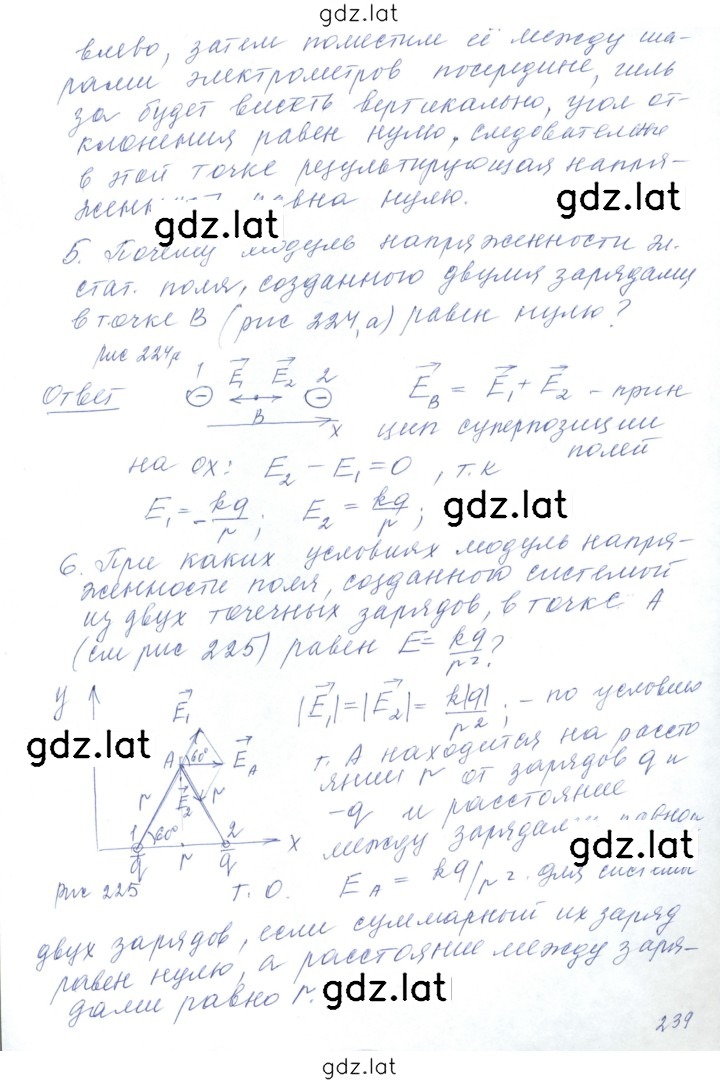 gdz.lat
влево, затем поместили её между ша-
рами электрометров посередине, гиль
за будет висеть вертикально, угол от-
клонения равен нулю, следовательно
в этой точке результирующая напря-
женн равна нулю.
gdz.lat
gdz.lat
5. Почему модуль напряженности эл.
стат. поля, созданного двумя зарядами,
в точке В (рис 224,а) равен нулю?
Рис 224а
Ответ
1 E₁ E₂ 2
B
x
E_B = E₁ + E₂ – прин
цип суперпозиции
полей
на ox: E₂ – E₁ = 0 , т.к
E₁ = kq/r ; E₂ = kq/r ;
gdz.lat
6. При каких условиях модуль напря-
женности поля, созданного системой
из двух точечных зарядов, в точке А
(см рис 225) равен E = kq/r² ?
y
E₁
|E₁| = |E₂| = k|q|/r² ; – по условию
gdz.lat
A 60° E_A
т. А находится на рассто
янии r от зарядов q и
r E₂ r
–q и расстояние
1 60° 2 x
между зарядами равной
gdz.lat
q r q
Рис 225
Т. О. E_A = kq/r². для системы
двух зарядов, если суммарный их заряд
равен нулю, а расстояние между заря-
дами равно r.
gdz.lat
239
gdz.lat